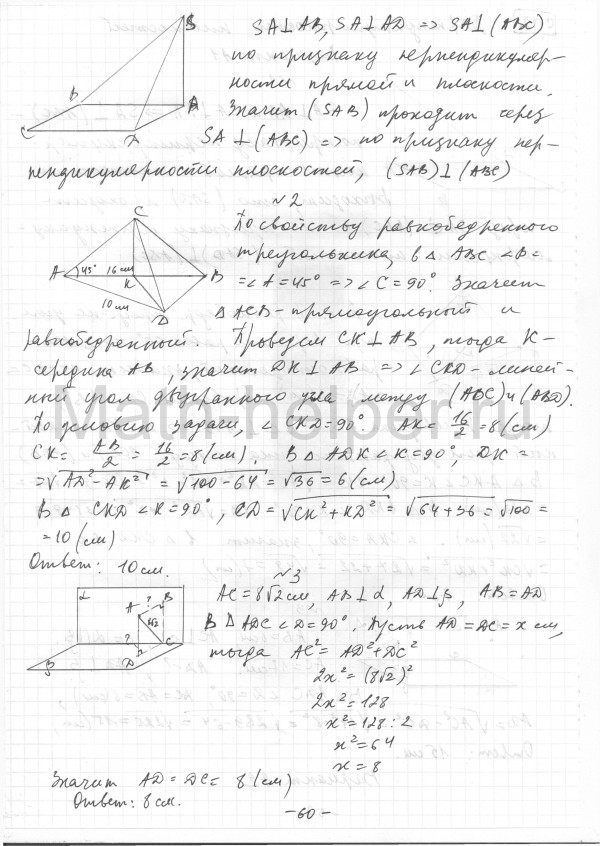 SA⊥AB, SA⊥AD => SA⊥(ABC)
по признаку перпендикуляр-
ности прямой и плоскости.
Значит (SAB) проходит через
SA⊥(ABC) => по признаку пер-
пендикулярности плоскостей, (SAB)⊥(ABC)
S
B
A
C
D
№2
По свойству равнобедренного
треугольника, в △ABC ∠B=
=∠A=45° => ∠C=90°. Значит
△ACB - прямоугольный и
равнобедренный. Проведем CK⊥AB, тогда K-
середина AB, значит DK⊥AB => ∠CKD - линей-
ный угол двугранного угла между (ABC) и (ABD).
По условию задачи, ∠CKD=90°. AK=16/2=8(см)
CK=AB/2=16/2=8(см). В △ADK ∠K=90°, DK=
=√AD²-AK² = √100-64 = √36 = 6(см)
В △CKD ∠K=90°, CD=√CK²+KD² = √64+36 = √100 =
=10(см)
Ответ: 10см.
C
A
45°
16см
K
B
10см
D
№3
AC=8√2см, AB⊥α, AD⊥β, AB=AD
В △ADC ∠D=90°. Пусть AD=DC=x см,
тогда AC²=AD²+DC²
2x²=(8√2)²
2x²=128
x²=128:2
x²=64
x=8
α
A
?
B
8√2
?
C
β
D
Значит AD=DC=8(см)
Ответ: 8см.
-60-
Math-helper.ru